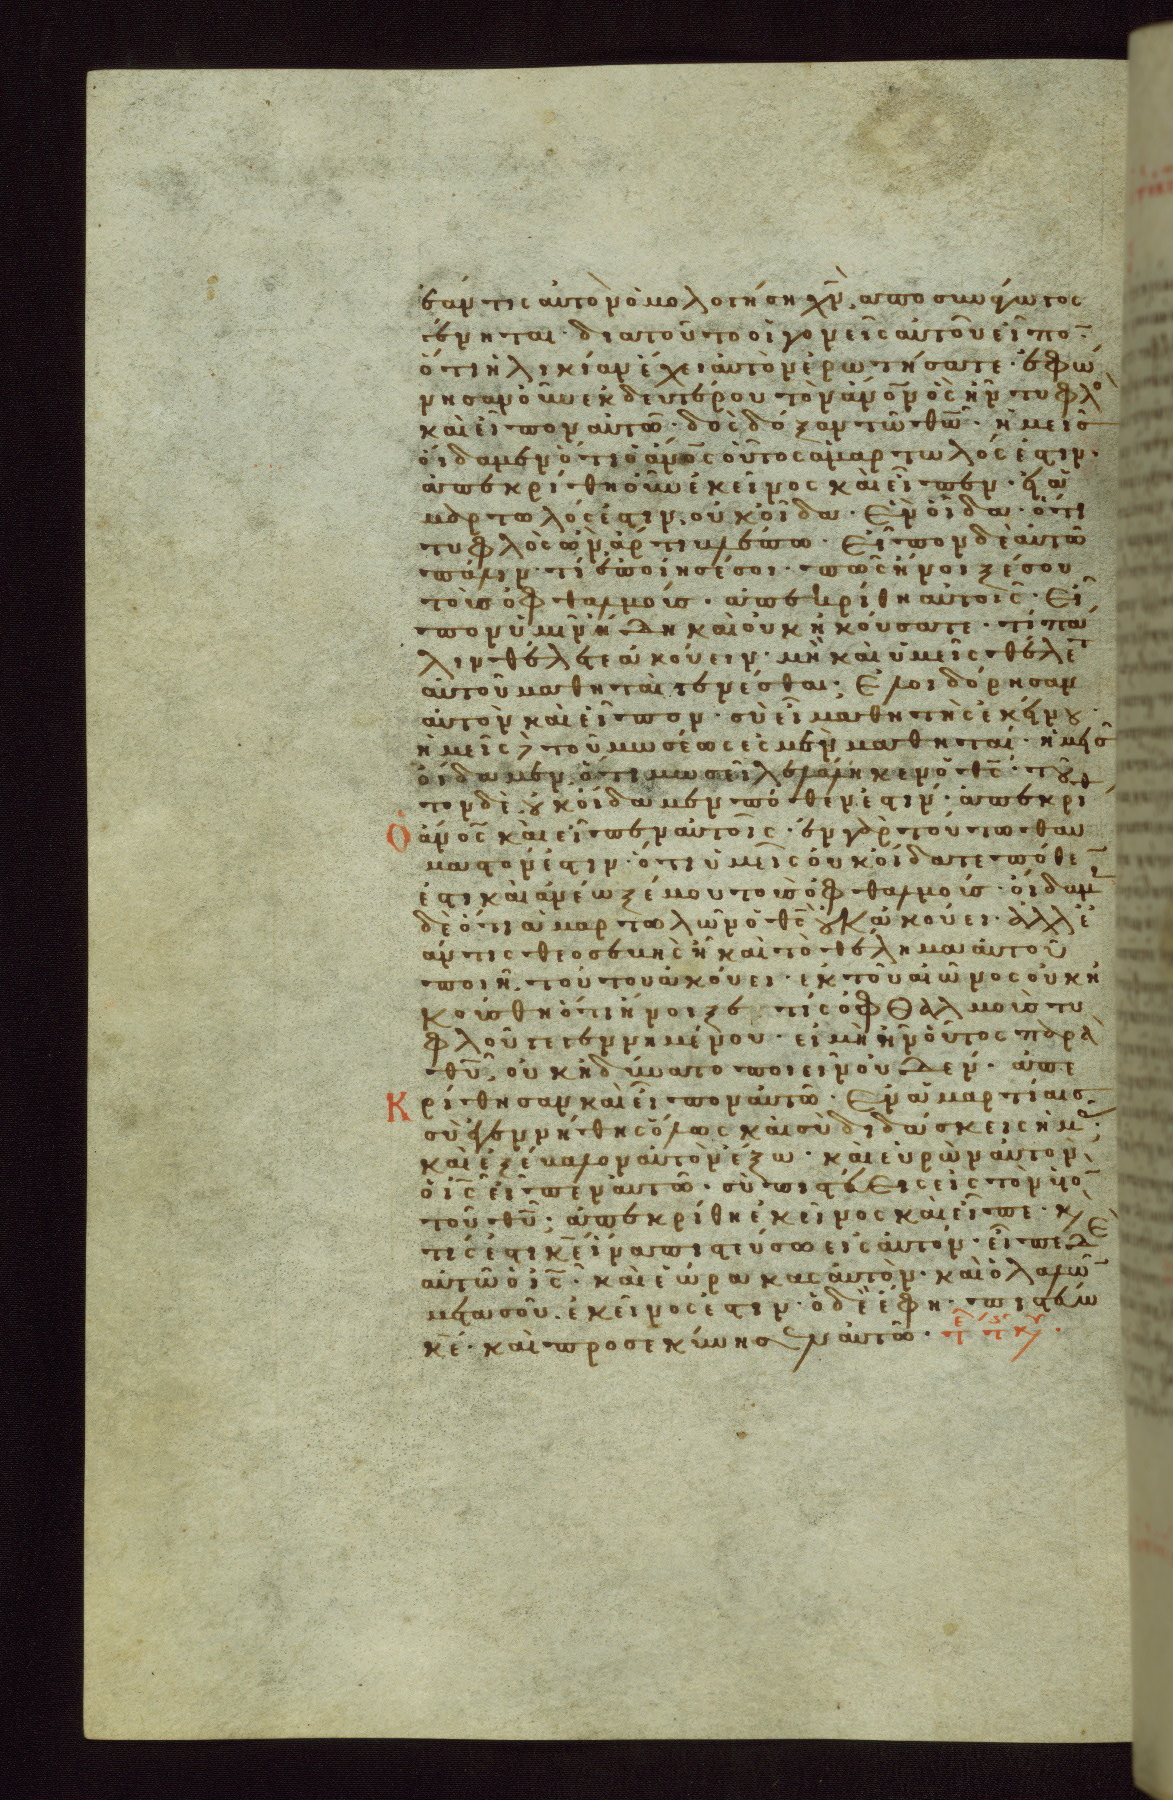 ἐάν τις αὐτὸν ὁμολογήσῃ χν̅, ἀποσυνάγωγος
γένηται· διατοῦτο οἱ γονεῖς αὐτοῦ εἶπον·
ὅτι ἡλικίαν ἔχει αὐτὸν ἐρωτήσατε· ἐφώ
νησαν οὖν ἐκ δευτέρου τὸν ἄνο̅ν ὃς ἦν τυφλὸς
καὶ εἶπον αὐτῶ· δὸς δόξαν τῶ θω̅· ἡμεῖς
οἴδαμεν ὅτι ὁ ἄνο̅ς οὗτος ἁμαρτωλός ἐστιν·
ἀπεκρίθη οὖν ἐκεῖνος καὶ εἶπεν· εἰ ἁ
μαρτωλός ἐστιν, οὐκ οἶδα· Ἓν οἶδα· ὅτι
τυφλὸς ὢν ἄρτι βλέπω· Εἶπον δὲ αὐτῶ
πάλιν· τί ἐποίησέ σοι· πῶς ἤνοιξέ σου
τοὺς ὀφθαλμούς· ἀπεκρίθη αὐτοῖς· Εἶ
πον ὑμῖν ἤδη καὶ οὐκ ἠκούσατε· τί πά
λιν θέλετε ἀκούειν· μὴ καὶ ὑμεῖς θέλετε
αὐτοῦ μαθηταὶ γενέσθαι· Ἐλοιδόρησαν
αὐτὸν καὶ εἶπον· σὺ εἶ μαθητὴς ἐκείνου·
ἡμεῖς δὲ τοῦ μωσέως ἐσμὲν μαθηταί· ἡμεῖς
οἴδαμεν ὅτι μωσεῖ λελάληκεν ὁ θς̅· τοῦ
τον δὲ οὐκ οἴδαμεν πόθεν ἐστίν· ἀπεκρίθη
Ὁ ἄνο̅ς καὶ εἶπεν αὐτοῖς· ἐν γὰρ τούτω θαυ
μαστόν ἐστιν· ὅτι ὑμεῖς οὐκ οἴδατε πόθεν
ἐστὶ καὶ ἀνέωξέ μου τοὺς ὀφθαλμούς· οἴδαμεν
δὲ ὅτι ἁμαρτωλῶν ὁ θς̅ οὐκ ἀκούει· ἀλλ' ἐ
άν τις θεοσεβὴς ἦ καὶ τὸ θέλημα αὐτοῦ
ποιῆ, τούτου ἀκούει· ἐκ τοῦ αἰῶνος οὐκ ἠ
κούσθη ὅτι ἤνοιξέ τις ὀφθαλμοὺς τυ
φλοῦ γεγεννημένου· εἰ μὴ ἦν οὗτος παρὰ
θυ̅, οὐκ ἠδύνατο ποιεῖν οὐδέν· ἀπε
Κρίθησαν καὶ εἶπον αὐτῶ· Ἐν ἁμαρτίαις
σὺ ἐγεννήθης ὅλως καὶ σὺ διδάσκεις ἡμᾶς·
καὶ ἐξέβαλον αὐτὸν ἔξω· καὶ εὑρὼν αὐτὸν
ὁ ις̅ εἶπεν αὐτῶ· σὺ πιστεύεις εἰς τὸν υἱὸν
τοῦ θυ̅· ἀπεκρίθη ἐκεῖνος καὶ εἶπε· καὶ
τίς ἐστι κε̅ ἵνα πιστεύσω εἰς αὐτόν· εἶπε δὲ
αὐτῶ ὁ ις̅· καὶ ἑώρακας αὐτὸν· καὶ ὁ λαλῶν
μετὰ σοῦ, ἐκεῖνός ἐστιν· ὁ δὲ ἔφη· πιστεύω
κε̅· καὶ προσεκύνησεν αὐτῶ·